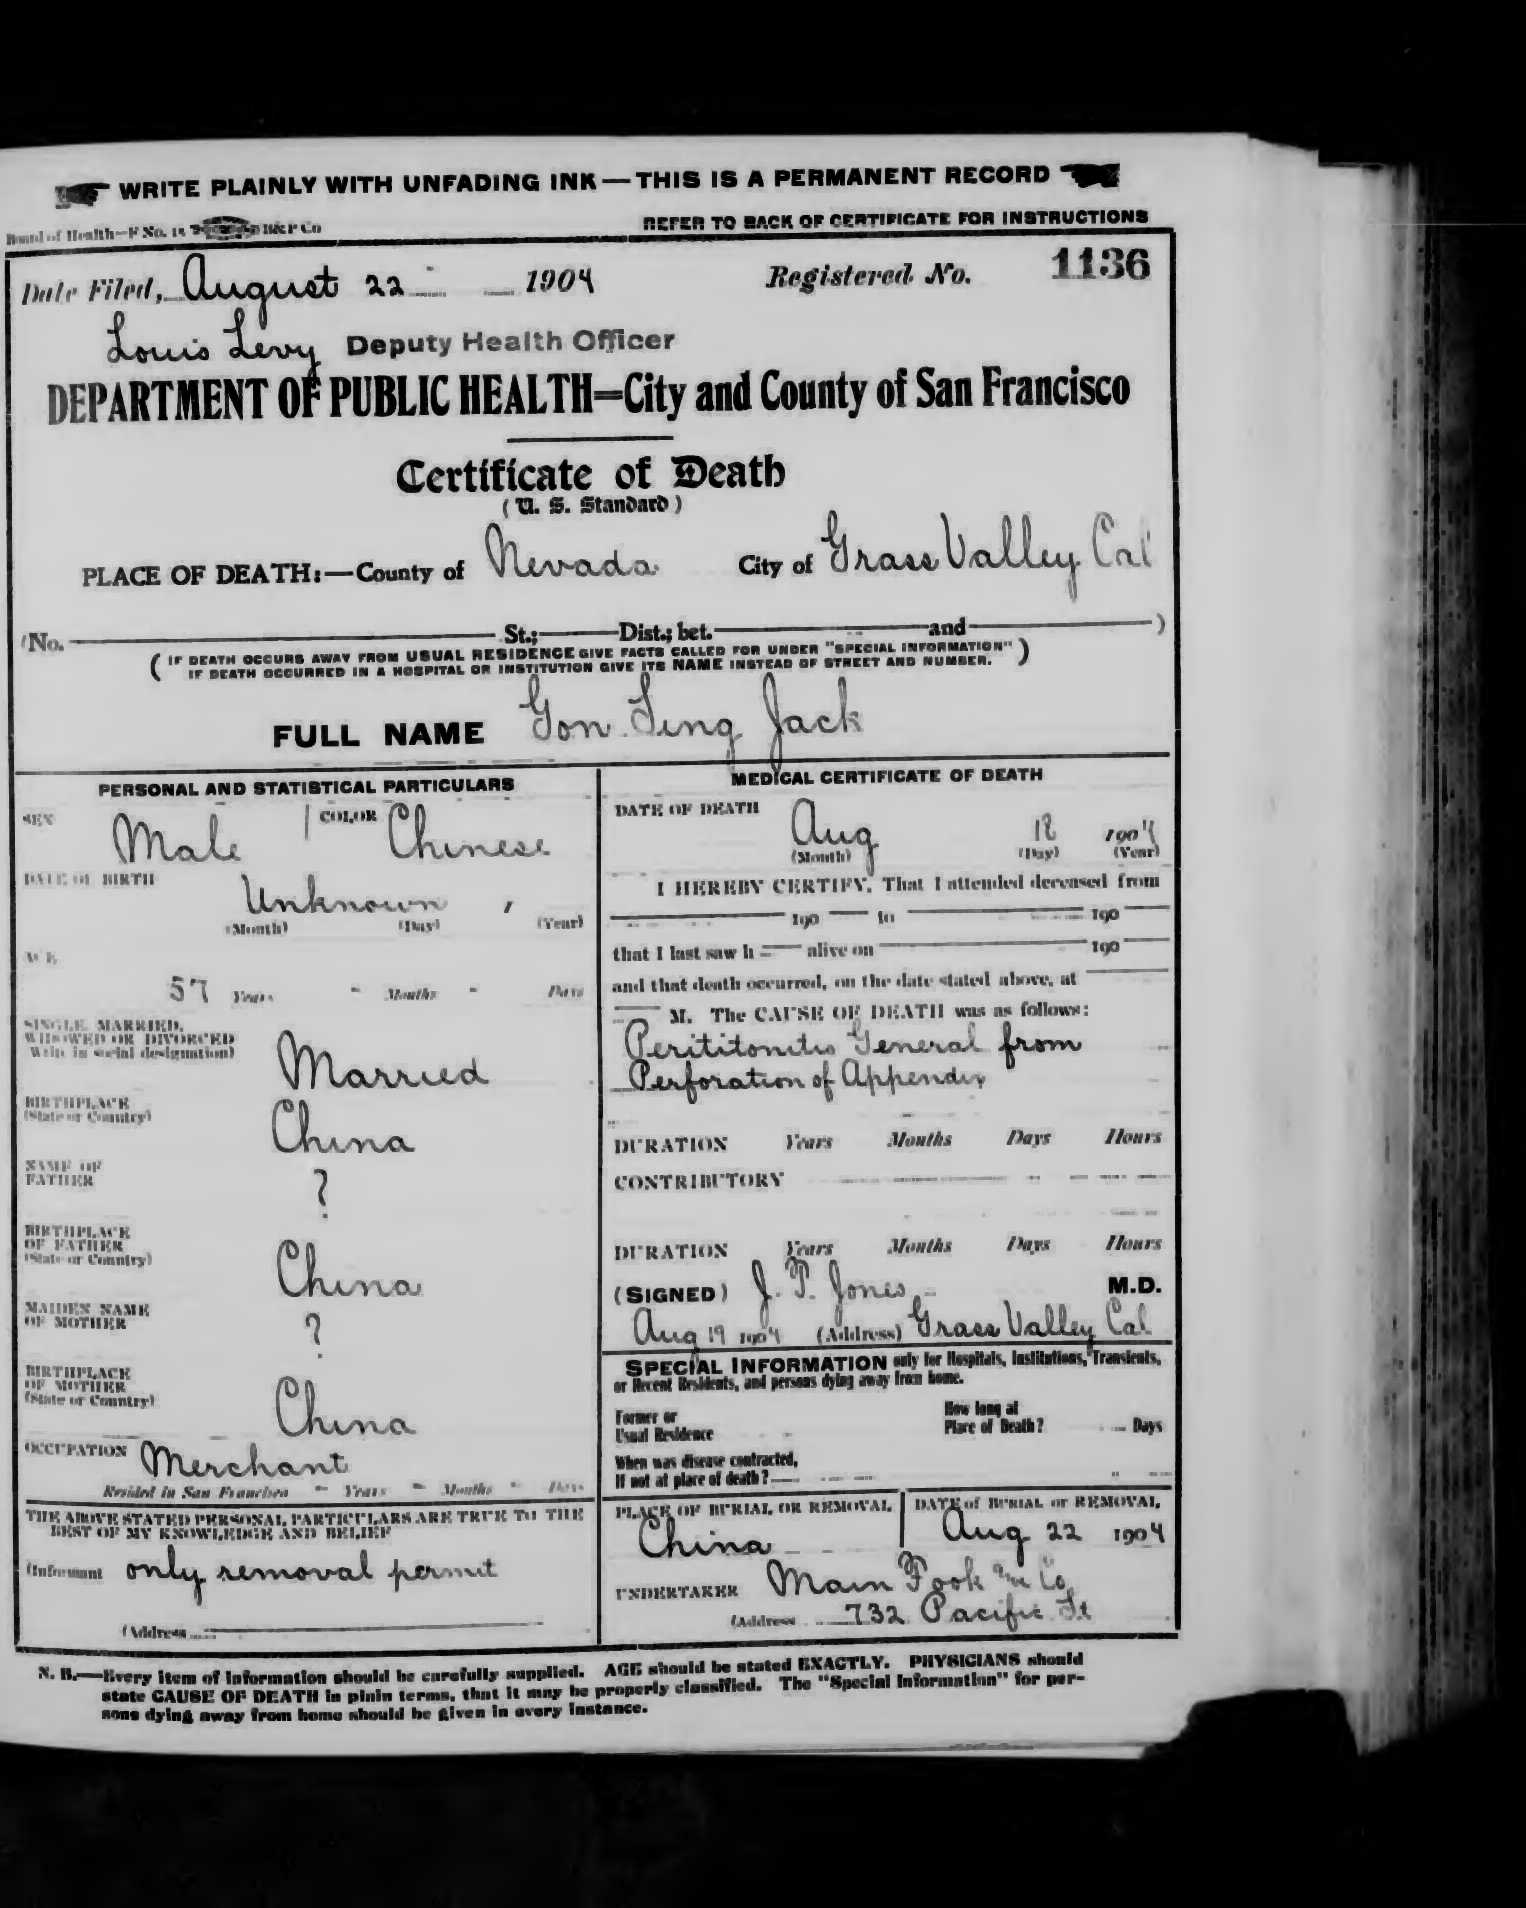 WRITE PLAINLY WITH UNFADING INK—THIS IS A PERMANENT RECORD
Board of Health—F No. 15 B&P Co
REFER TO BACK OF CERTIFICATE FOR INSTRUCTIONS
Date Filed, August 22 1904 Registered No. 1136
Louis Levy Deputy Health Officer
DEPARTMENT OF PUBLIC HEALTH=City and County of San Francisco
Certificate of Death
(U. S. Standard)
PLACE OF DEATH:—County of Nevada City of Grass Valley Cal
(No. St.; Dist.; bet. and )
(IF DEATH OCCURS AWAY FROM USUAL RESIDENCE GIVE FACTS CALLED FOR UNDER "SPECIAL INFORMATION"
IF DEATH OCCURRED IN A HOSPITAL OR INSTITUTION GIVE ITS NAME INSTEAD OF STREET AND NUMBER.)
FULL NAME Gon Sing Jack
PERSONAL AND STATISTICAL PARTICULARS
SEX Male COLOR Chinese
DATE OF BIRTH Unknown
(Month) (Day) (Year)
AGE
57 Years - Months - Days
SINGLE, MARRIED,
WIDOWED OR DIVORCED
(Write in social designation) Married
BIRTHPLACE
(State or Country) China
NAME OF
FATHER ?
BIRTHPLACE
OF FATHER
(State or Country) China
MAIDEN NAME
OF MOTHER ?
BIRTHPLACE
OF MOTHER
(State or Country) China
OCCUPATION Merchant
Resided in San Francisco - Years - Months - Days
THE ABOVE STATED PERSONAL PARTICULARS ARE TRUE TO THE
BEST OF MY KNOWLEDGE AND BELIEF
(Informant only removal permit
(Address
MEDICAL CERTIFICATE OF DEATH
DATE OF DEATH
Aug 18 1904
(Month) (Day) (Year)
I HEREBY CERTIFY, That I attended deceased from
190 to 190
that I last saw h alive on 190
and that death occurred, on the date stated above, at
M. The CAUSE OF DEATH was as follows:
Perititonitis General from
Perforation of Appendix
DURATION Years Months Days Hours
CONTRIBUTORY
DURATION Years Months Days Hours
(SIGNED) J. T. Jones M.D.
Aug 19 1904 (Address) Grass Valley Cal
SPECIAL INFORMATION only for Hospitals, Institutions, Transients,
or Recent Residents, and persons dying away from home.
Former or
Usual Residence
How long at
Place of Death? Days
When was disease contracted,
If not at place of death?
PLACE OF BURIAL OR REMOVAL
China
DATE of BURIAL or REMOVAL
Aug 22 1904
UNDERTAKER Main Fook Co
(Address 732 Pacific St
N. B.—Every item of information should be carefully supplied. AGE should be stated EXACTLY. PHYSICIANS should
state CAUSE OF DEATH in plain terms, that it may be properly classified. The "Special Information" for per-
sons dying away from home should be given in every instance.